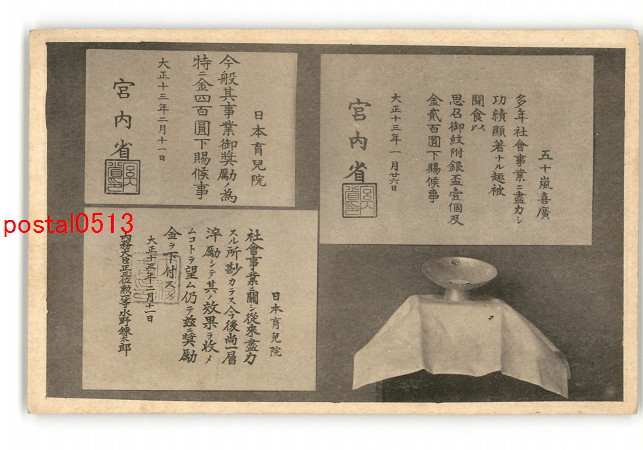 五十嵐喜廣
多年社會事業ニ盡力シ
功績顯著ナル趣被
聞食ハ
思召御紋附銀盃壹個及
金貳百圓下賜候事
大正十三年一月廿六日
宮内省
日本育兒院
今般其事業御奬勵ノ為
特ニ金四百圓下賜候事
大正十三年二月十一日
宮内省
日本育兒院
社會事業ニ關シ従來盡力
スル所尠カラス今後尚一層
淬勵シテ其ノ效果ヲ收メ
ムコトヲ望ム仍テ茲ニ奬勵
金ヲ下付ス
大正十三年二月十一日
内務大臣正位勲等水野錬太郎
postal0513